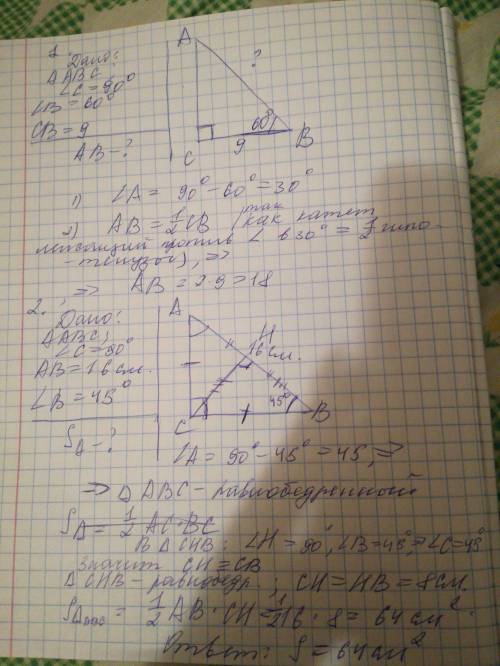 1.
Дано:
△ABC,
∠C=90°
∠B=60°
CB=9
AB-?
A
?
60°
B
C
9
1) ∠A = 90°-60°=30°
2) AB=1/2CB (так как катет
лежащий против ∠ в 30° = 1/2 гипо-
-тенузы), =>
=> AB=2·9=18
2.
Дано:
△ABC,
∠C=90°
AB=16см.
∠B=45°
S△-?
A
H
16см.
45°
B
C
∠A=90°-45°=45, =>
=> △ABC-равнобедренный
S△=1/2 AC·BC
В △CHB: ∠H=90°, ∠B=45° => ∠C=45°
значит CH=CB
△CHB-равнобедр.; CH=HB=8см.
S△ABC=1/2 AB·CH=1/2 16·8=64см².
Ответ: S=64см²